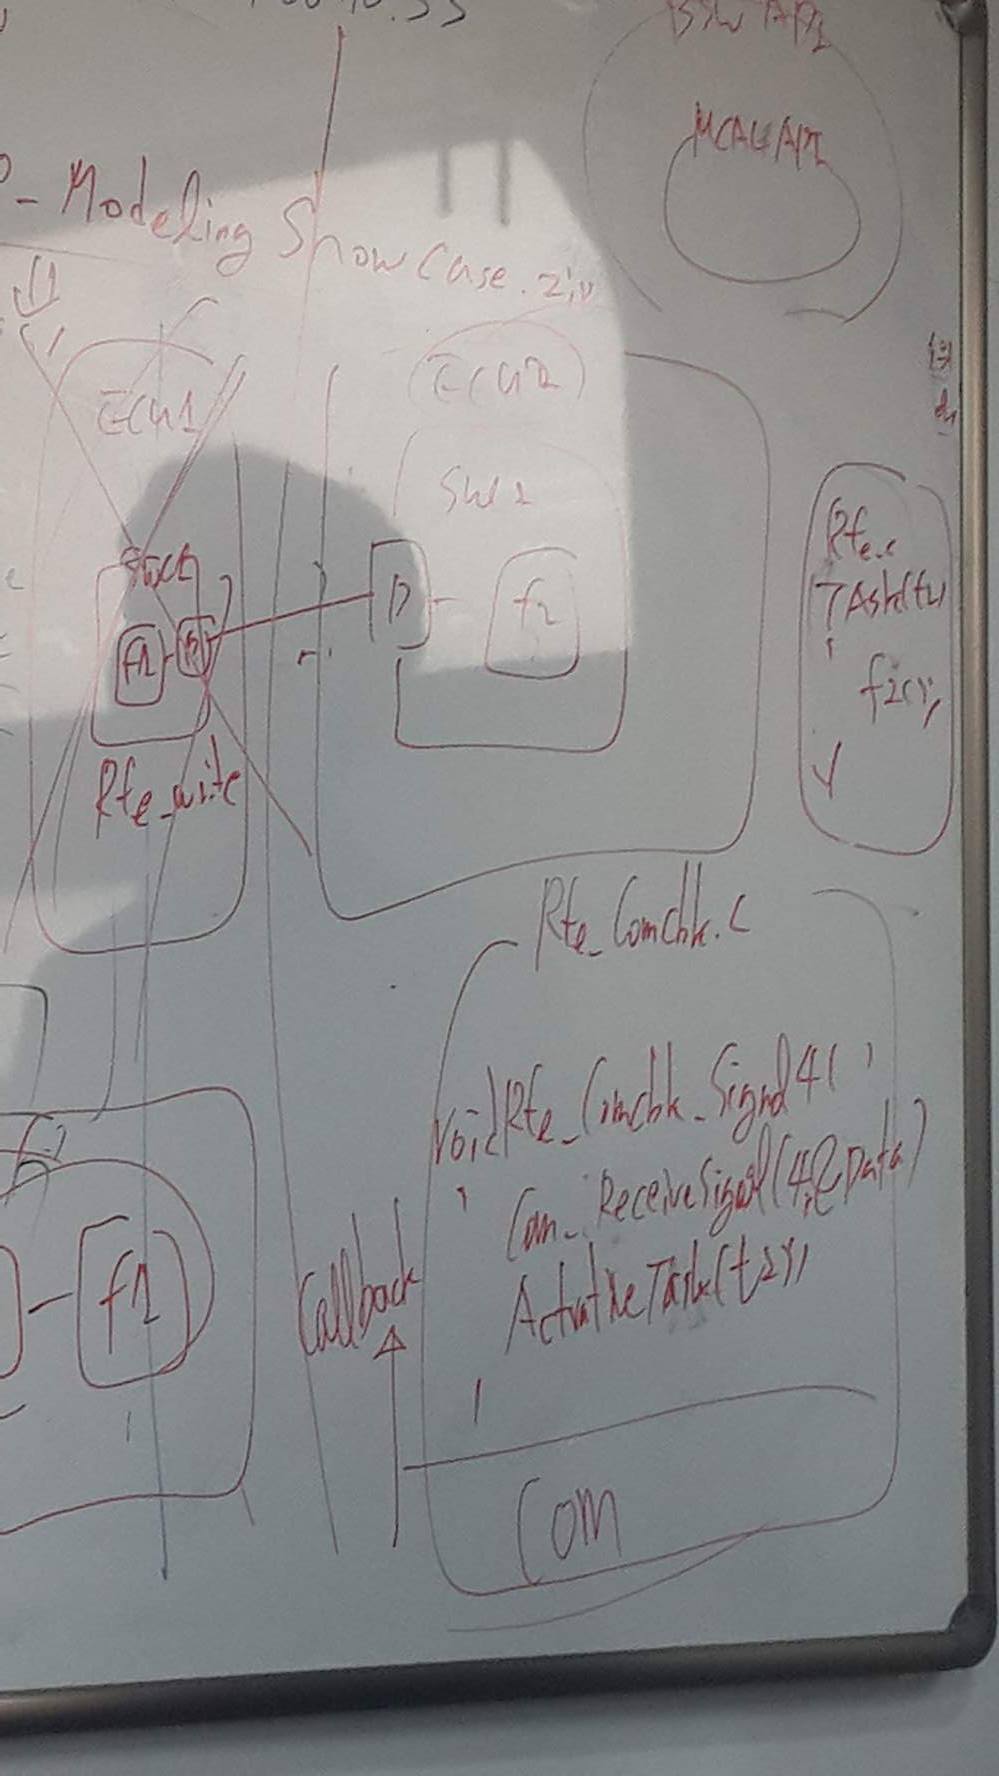 BSW API
MCAL API
- Modeling Showcase.zip
ECU1
ECU2
SW2
f1
P
f2
Rte_write
Rte.c
TASK(t2)
f2();
}
Rte_Comcbk.c
void Rte_Comcbk_Signal4(
Com_ReceiveSignal(4,&Data)
ActivateTask(t2);
Callback
f1
Com